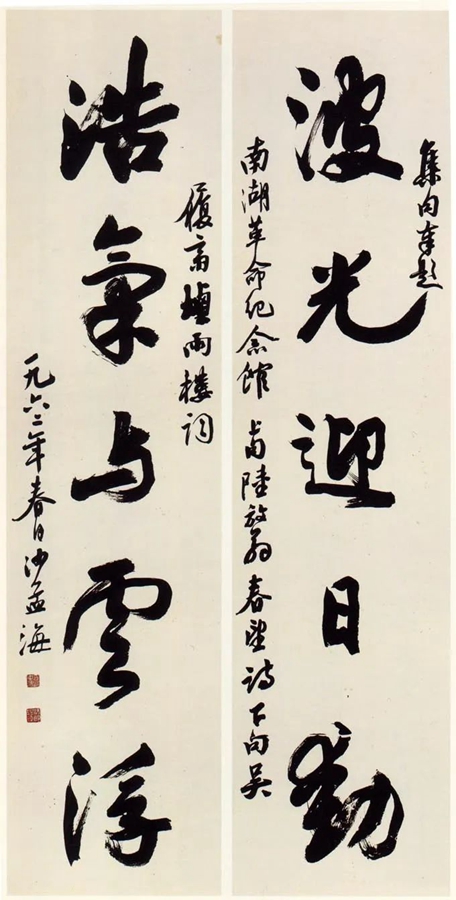 集句奉題
波光迎日動
南湖革命纪念館 上句陸放翁春望詩下句吳
履齋煙雨樓詞
浩氣与雲浮
一九六二年春日沙孟海